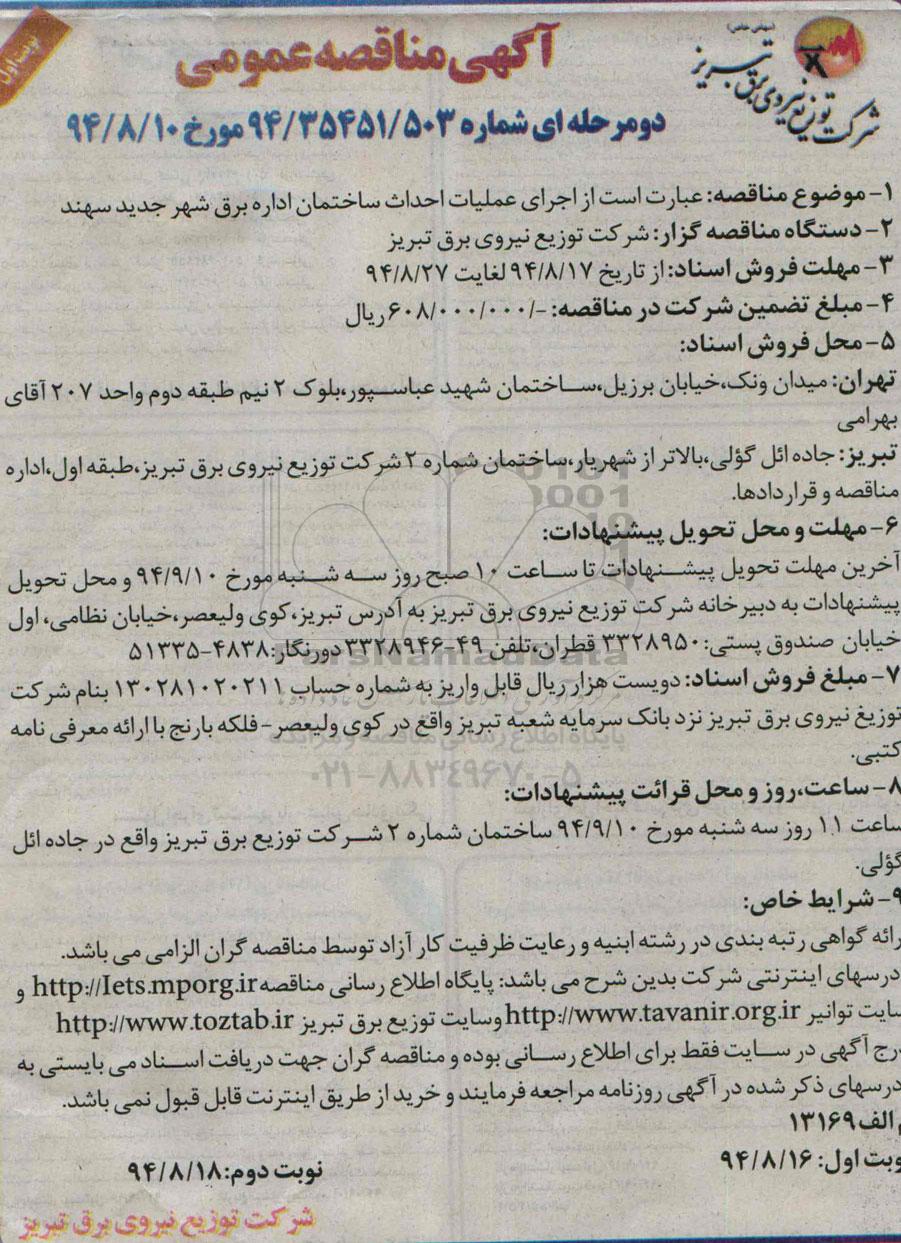 نوبت اول
آگهی مناقصه عمومی
(سهامی خاص)
شرکت توزیع نیروی برق تبریز
دومرحله ای شماره ۹۴/۳۵۴۵۱/۵۰۳ مورخ ۹۴/۸/۱۰
۱- موضوع مناقصه: عبارت است از اجرای عملیات احداث ساختمان اداره برق شهر جدید سهند
۲- دستگاه مناقصه گزار: شرکت توزیع نیروی برق تبریز
۳- مهلت فروش اسناد: از تاریخ ۹۴/۸/۱۷ لغایت ۹۴/۸/۲۷
۴- مبلغ تضمین شرکت در مناقصه: -/۶۰۸/۰۰۰/۰۰۰ ریال
۵- محل فروش اسناد:
تهران: میدان ونک،خیابان برزیل،ساختمان شهید عباسپور،بلوک ۲ نیم طبقه دوم واحد ۲۰۷ آقای
بهرامی
تبریز: جاده ائل گؤلی،بالاتر از شهریار،ساختمان شماره ۲ شرکت توزیع نیروی برق تبریز،طبقه اول،اداره
مناقصه و قراردادها.
۶- مهلت و محل تحویل پیشنهادات:
آخرین مهلت تحویل پیشنهادات تا ساعت ۱۰ صبح روز سه شنبه مورخ ۹۴/۹/۱۰ و محل تحویل
پیشنهادات به دبیرخانه شرکت توزیع نیروی برق تبریز به آدرس تبریز،کوی ولیعصر،خیابان نظامی، اول
خیابان صندوق پستی: ۳۳۲۸۹۵۰ قطران،تلفن ۴۹-۳۳۲۸۹۴۶ دورنگار: ۴۸۳۸-۵۱۳۳۵
۷- مبلغ فروش اسناد: دویست هزار ریال قابل واریز به شماره حساب ۱۳۰۲۸۱۰۲۰۲۱۱ بنام شرکت
توزیغ نیروی برق تبریز نزد بانک سرمایه شعبه تبریز واقع در کوی ولیعصر - فلکه بارنج با ارائه معرفی نامه
کتبی.
پایگاه اطلاع رسانی مناقصه و مزایده
۰۲۱-۸۸۳۴۹۶۷۰-۵
۸- ساعت،روز و محل قرائت پیشنهادات:
ساعت ۱۱ روز سه شنبه مورخ ۹۴/۹/۱۰ ساختمان شماره ۲ شرکت توزیع برق تبریز واقع در جاده ائل
گؤلی.
۹- شرایط خاص:
رائه گواهی رتبه بندی در رشته ابنیه و رعایت ظرفیت کار آزاد توسط مناقصه گران الزامی می باشد.
درسهای اینترنتی شرکت بدین شرح می باشد: پایگاه اطلاع رسانی مناقصه http://Iets.mporg.ir و
سایت توانیر http://www.tavanir.org.ir وسایت توزیع برق تبریز http://www.toztab.ir
رج آگهی در سایت فقط برای اطلاع رسانی بوده و مناقصه گران جهت دریافت اسناد می بایستی به
درسهای ذکر شده در آگهی روزنامه مراجعه فرمایند و خرید از طریق اینترنت قابل قبول نمی باشد.
م الف ۱۳۱۶۹
وبت اول: ۹۴/۸/۱۶
نوبت دوم: ۹۴/۸/۱۸
شرکت توزیع نیروی برق تبریز